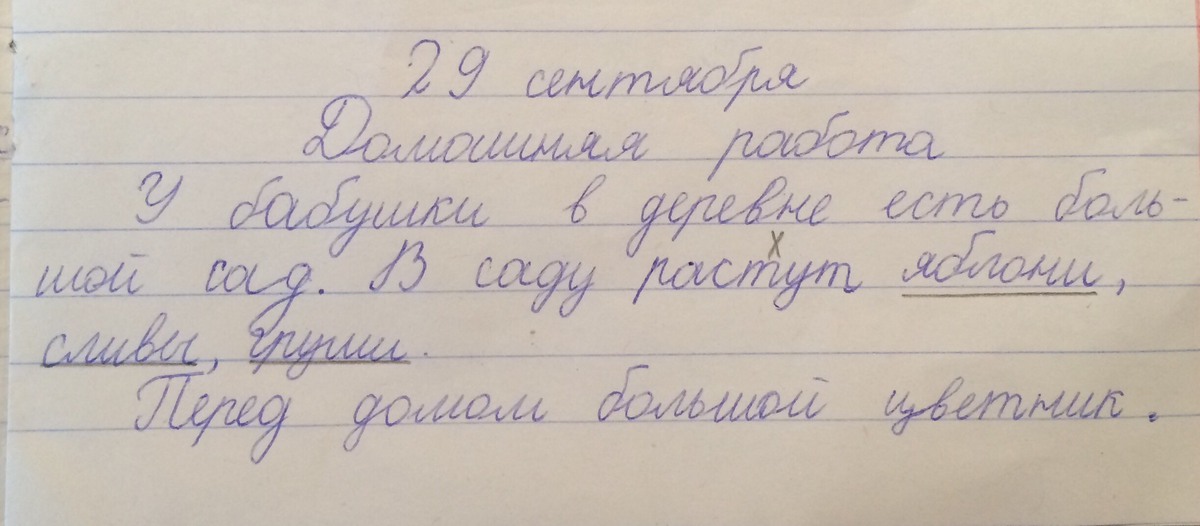 29 сентября
Домашняя работа
У бабушки в деревне есть боль-
шой сад. В саду растут яблони,
сливы, груши.
Перед домом большой цветник.